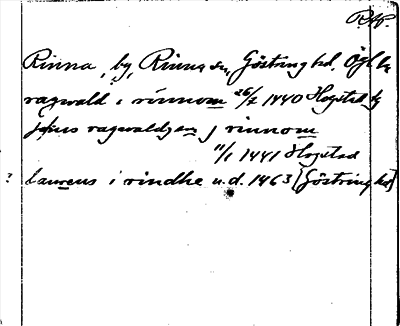 Rinna, by, Rinna sn, Göstring hd, Ögl
ragwald i rinnom 26/2 1440 Hogstad
jönis ragwaldzson j rinnom
11/1 1441 Hogstad
? laurens i rindhe u.d. 1463 (Göstring hd)